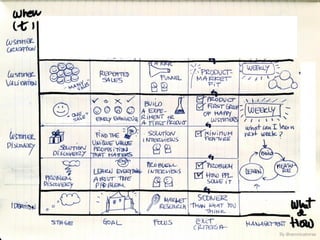 When
(t)
CUSTOMER
CREATION
CUSTOMER
VALIDATION
MANY
SALES
REPEATED
SALES
FUNNEL
PRODUCT-
MARKET
FIT
WEEKLY
ONE
SALE
EARLY EVANGELISTS
BUILD
A EXPE-
RIMENT OR
A FIRST PRODUCT
PRODUCT
FIRST GROUP
OF HAPPY
CUSTOMERS
WEEKLY
WHAT CAN I SHOW
NEXT WEEK?
CUSTOMER
DISCOVERY
SOLUTION
DISCOVERY
FIND THE
UNIQUE VALUE
PROPOSITION
THAT MATTERS
SOLUTION
INTERVIEWS
MINIMUM
FEATURE
BUILD
MEASURE
LEARN
PROBLEM
DISCOVERY
LEARN EVERYTHING
ABOUT THE
PROBLEM
PROBLEM
INTERVIEWS
PROBLEM
HOW PPL
SOLVE IT
IDEATION
MARKET
RESEARCH
SOONER
THAN WHAT YOU
THINK
What
&
How
STAGE
GOAL
FOCUS
EXIT
CRITERIA
MANAGEMENT